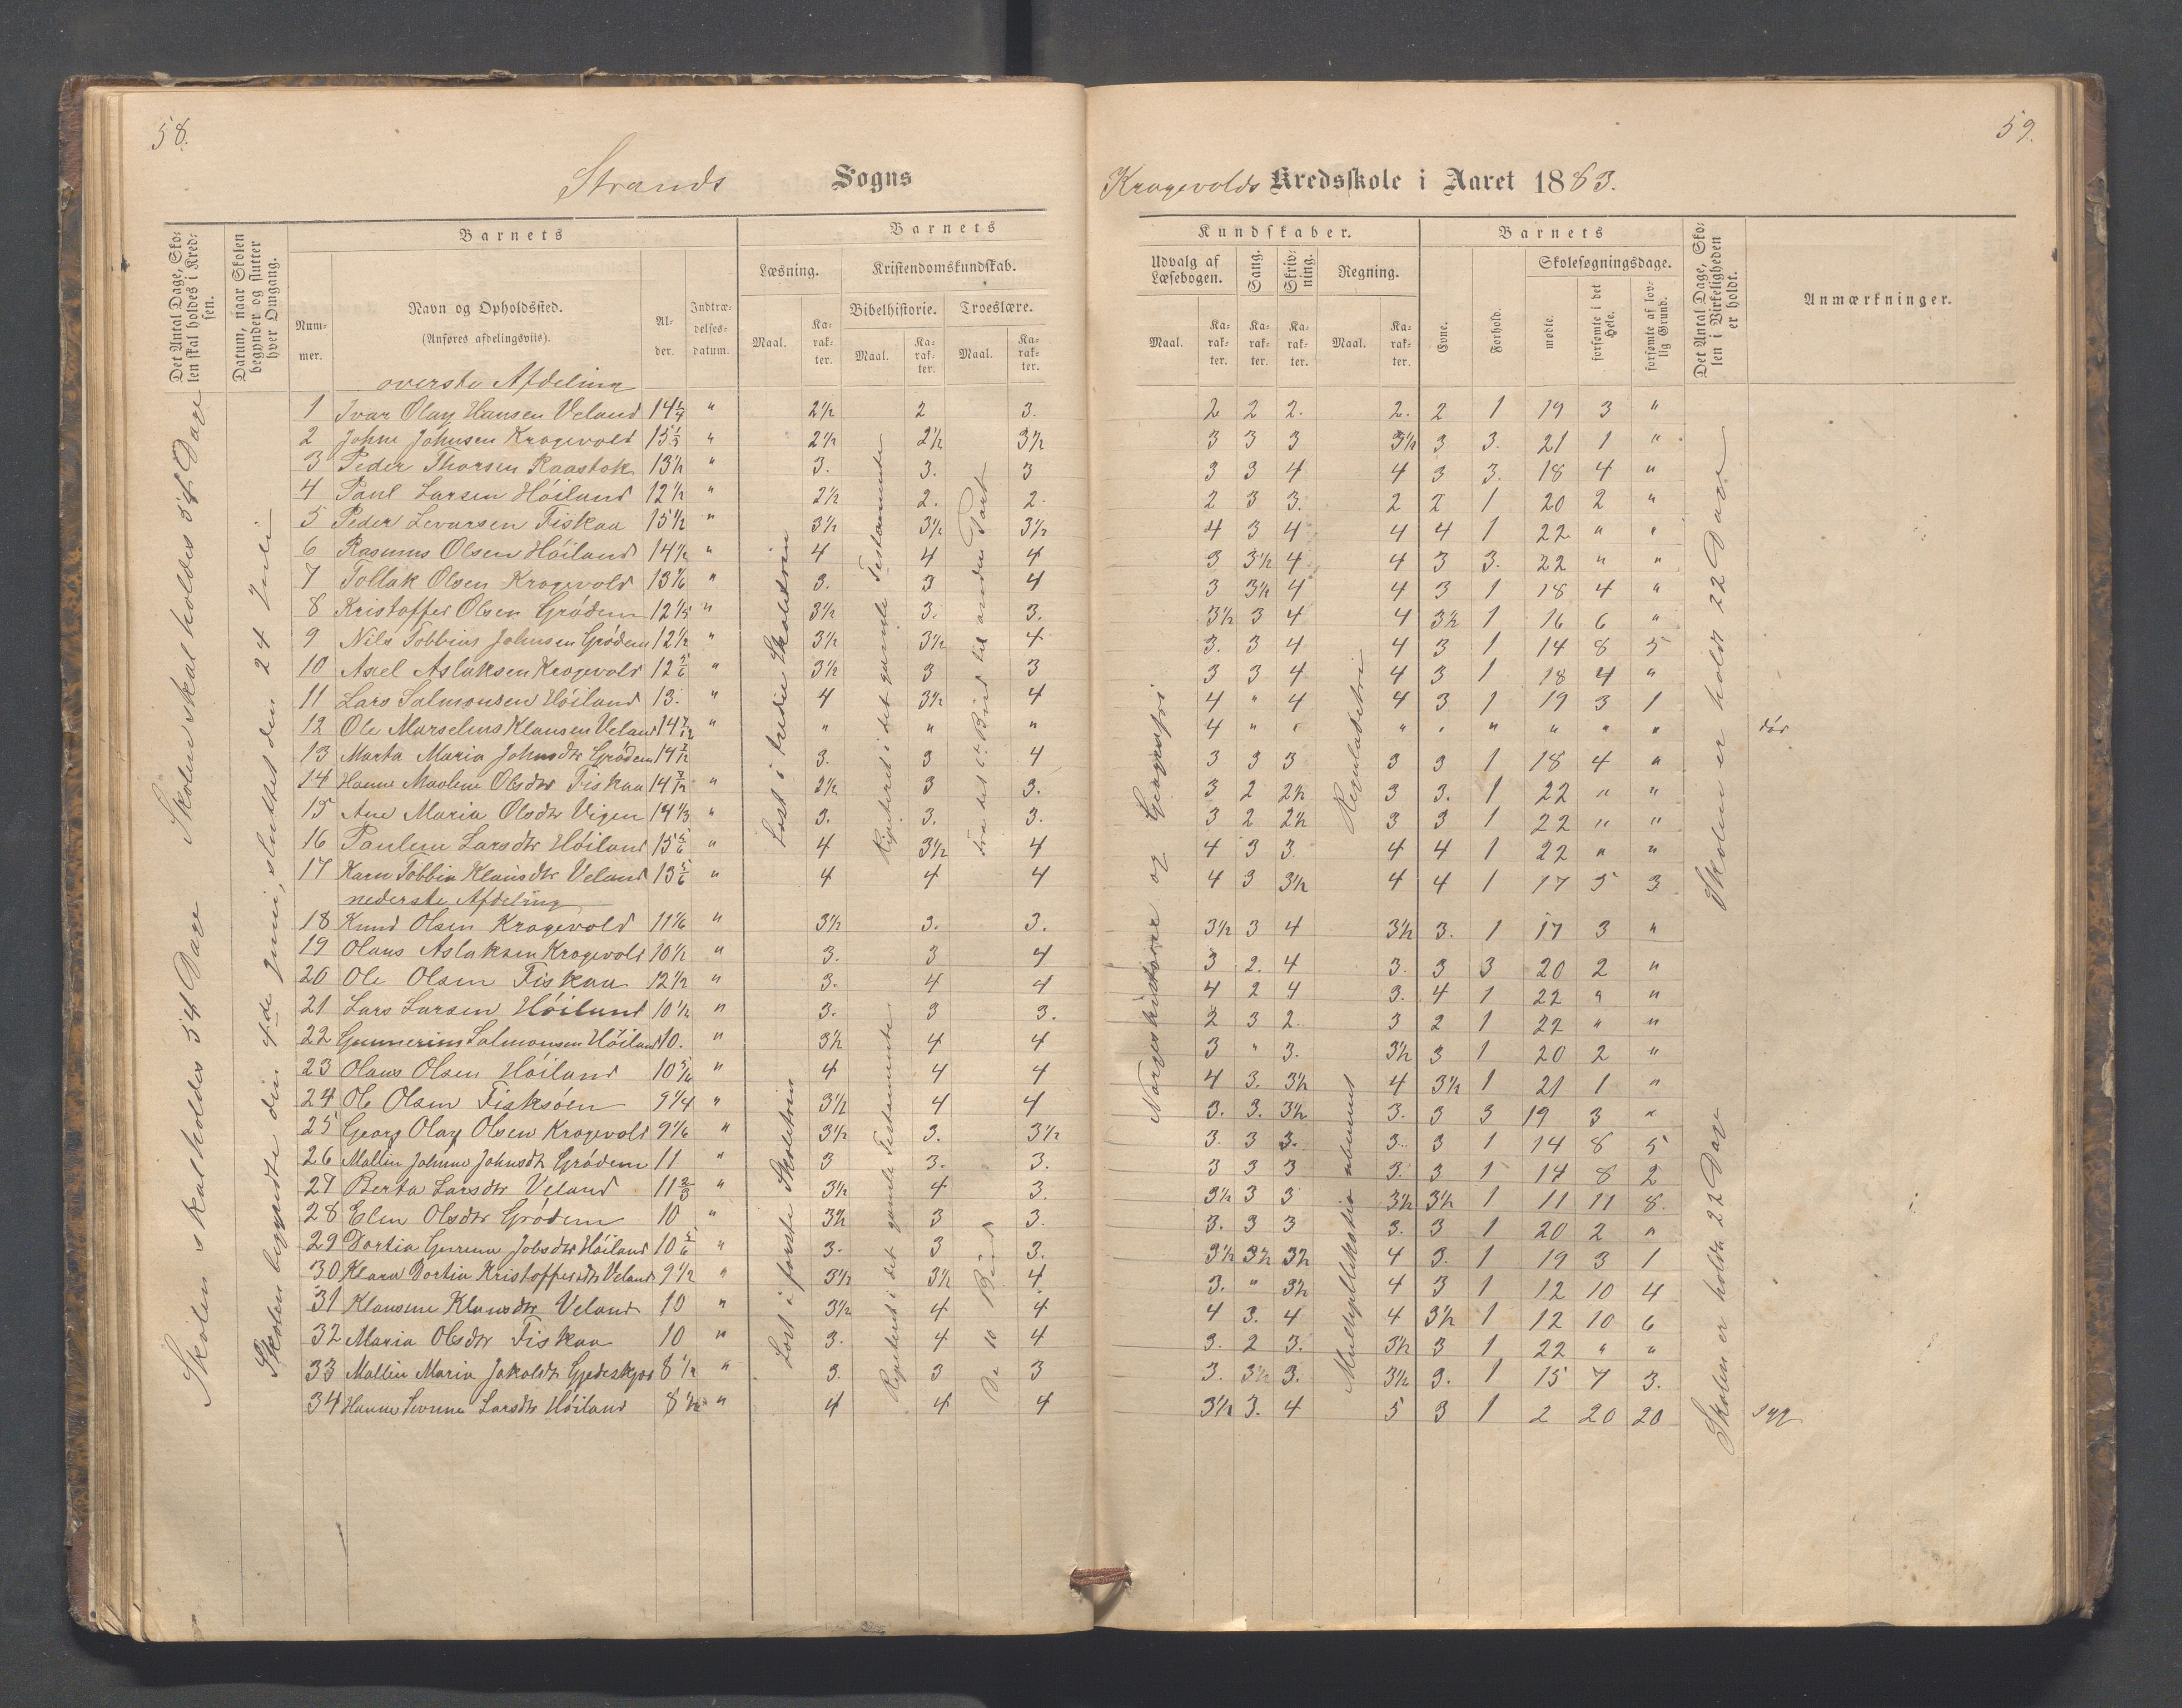 58.
59.
Strands Sogns
Krogevolds Kredsskole i Aaret 1883.
Det Antal Dage, Sko-
len skal holdes i Kred-
sen.
Datum, naar Skolen
begynder og slutter
hver Omgang.
Barnets
Num-
mer.
Navn og Opholdssted.
(Anføres afdelingsviis).
Al-
der.
Indtræ-
delses-
datum.
Barnets
Læsning.
Kristendomskundskab.
Bibelhistorie.
Troeslære.
Maal.
Ka-
rak-
ter.
Maal.
Ka-
rak-
ter.
Maal.
Ka-
rak-
ter.
Kundskaber.
Udvalg af
Læsebogen.
Sang.
Skriv-
ning.
Regning.
Maal.
Ka-
rak-
ter.
Ka-
rak-
ter.
Ka-
rak-
ter.
Maal.
Ka-
rak-
ter.
Barnets
Evne.
Forhold.
Skolesøgningsdage.
mødte.
forsømte i det
Hele.
forsømte af lov-
lig Grund.
Det Antal Dage, Sko-
len i Virkeligheden
er holdt.
Anmærkninger.
Skolen skal holdes 54 Dage
Skolen skal holdes 54 Dage
Skolen begyndte din 4de Juni, sluttet den 24 Juli
Læst i tredie Skoletrin
Læst i første Skoletrin
Norgeshistorie og Geografi
Skolen er holdt 22 Dage
Skolen er holdt 22 Dage
overste Afdeling
1 Ivar Olay Hansen Veland 14 1/4 " 2½ 2 3. 2 2 2. 2. 2 1 19 3 "
2 Johne Johnsen Krogevold 15 1/3 " 2½ 2½ 3½ 3 3 3 3½ 3 3. 21 1 "
3 Peder Thorsen Raastok 13½ " 3. 3. 3 3 3 4 4 3 3. 18 4 "
4 Paul Larsen Höiland 12½ " 2½ 2. 2. 2 3 3. 2 2 1 20 2 "
5 Peder Levarsen Fiskaa 15½ " 3½ 3½ 3½ 4 3 4 4 4 1 22 " "
6 Rasmus Olsen Höiland 14½ " 4 4 4 3 3½ 4 4 3 3. 22 " "
7 Tollak Olsen Krogevold 13 1/6 " 3. 3 4 3 3½ 4 4 3 1 18 4 "
8 Kristoffer Olsen Grödem 12 1/5 " 3½ 3. 3. 3½ 3 4 4 3½ 1 16 6 "
9 Nils Tobbias Johnsen Grödem 12½ " 3½ 3½ 4 3. 3 4 4 3 1 14 8 5
10 Axel Aslaksen Krogevold 12 5/6 " 3½ 3 3 3 3 4 4 3 1 18 4 "
11 Lars Salmonsen Höiland 13. " 4 3½ 4 4 " 4 4 3 1 19 3 1
12 Ole Marselius Klausen Veland 14 7/12 " " " " 4 " " " " " " " " dör
13 Marta Maria Johnsdtr Grödem 14 7/12 3. 3 4 3 3 3 3 3 1 18 4 "
14 Hanne Maolene Olsdtr Fiskaa 14 7/12 " 2½ 3 3. 3 2 2½ 3 3. 1 22 " "
15 Ane Maria Olsdtr Vigen 14 1/3 " 3. 3. 3. 3 2 2½ 3 3 1 22 " "
16 Pauline Larsdtr Höiland 15 5/6 " 4 3½ 4 4 3 3. 4 4 1 22 " "
17 Karn Tobbia Klausdtr Veland 13 5/6 " 4 4 4 4 3 3½ 4 4 1 17 5 3
nederste Afdeling
18 Knud Olsen Krogevold 11 1/6 " 3½ 3. 3. 3½ 3 4 3½ 3. 1 17 3 "
19 Olaus Aslaksen Krogevold 10½ " 3. 3 4 3 2. 4 3. 3 3 20 2 "
20 Ole Olsen Fiskaa 12½ " 3. 4 4 4 2 4 3. 4 1 22 " "
21 Lars Larsen Höiland 10½ " 3. 3 3. 2 3 2. 3 2 1 22 " "
22 Gunnerius Salmonsen Höiland 10. " 3½ 4 4 3 " 3. 3½ 3 1 20 2 "
23 Olaus Olsen Höiland 10 " 4 4 4 4 3. 3½ 4 3½ 1 21 1 "
24 Ole Olsen Fisksöen 9 1/4 " 3½ 4 4 3. 3. 3½ 3. 3 3 19 3 "
25 Georg Olay Olsen Krogevold 9 1/6 " 3½ 3. 3½ 3. 3 3. 3. 3 1 14 8 5
26 Mallin Johnne Johnsdtr Grödem 11 " 3 3. 3. 3 3 3 3. 3 1 14 8 2
27 Berta Larsdtr Veland 11 2/3 " 3½ 4 3. 3½ 3 3 3½ 3½ 1 11 11 8
28 Elen Olsdtr Grödem 10 " 3½ 3 3. 3. 3 3 3. 3 1 20 2 "
29 Dortia Gurene Jobsdtr Höiland 10 5/6 " 3. 3 3. 3½ 3½ 3½ 4 3. 1 19 3 1
30 Klara Dortia Kristoffersdtr Veland 9½ " 3½ 3½ 4 3. " 3½ 4 3 1 12 10 4
31 Klausine Klausdtr Veland 10 " 3½ 4 4 4 3. 4 4 3½ 1 12 10 6
32 Maria Olsdtr Fiskaa 10 " 3. 4 4 3. 2 3. 3½ 3 1 22 " "
33 Mallin Maria Jakobdtr 8½ " 3. 3 3 3. 3½ 3. 3½ 3. 1 15 7 3.
34 Hanne Larsdtr Höiland 8 " 4 4 4 3½ 3. 4 5 3 1 2 20 20 syg